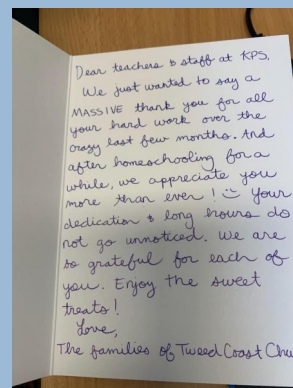 Dear teachers & staff at KPS,
We just wanted to say a
MASSIVE thank you for all
your hard work over the
crazy last few months. And
after homeschooling for a
while, we appreciate you
more than ever! Your
dedication & long hours do
not go unnoticed. We are
so grateful for each of
you. Enjoy the sweet
treats!
Love,
The families of Tweed Coast